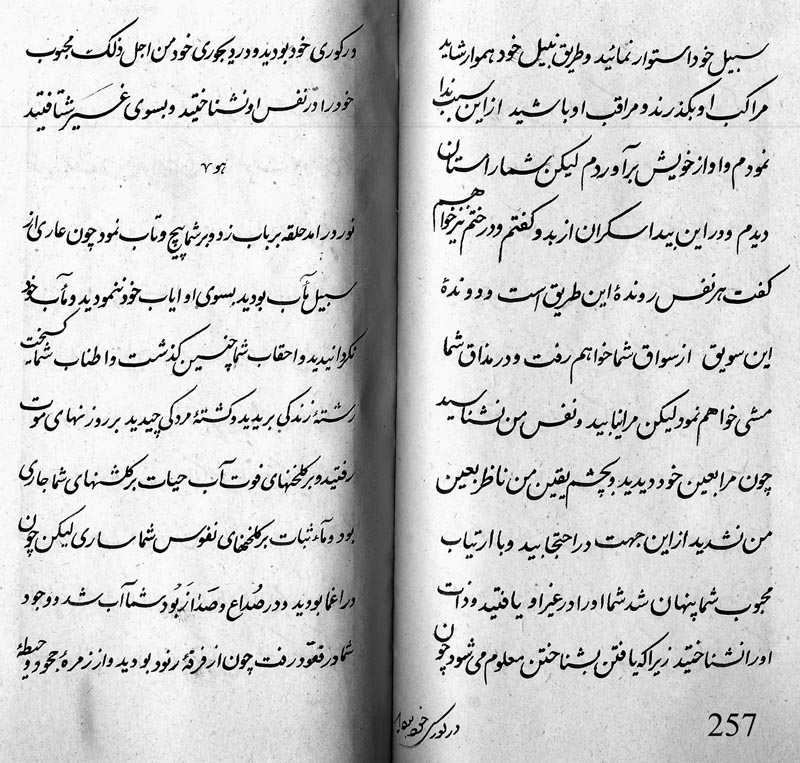 سبیل خود استوار نمائید و طریق نبیل خود هموار شاید
مراکب او بگذرند و مراقب او باشید ازاین سبب ندا
نمودم و اواز خویش برآوردم لیکن شما راستان
دیدم و در این بیدا سکران از بد و گفتم و در ختم نیز خواهم
گفت هر نفس روندهٔ این طریق است و دوندهٔ
این سویق از سواق شما خواهم رفت و در مذاق شما
مشی خواهم نمود لیکن مرا نیابید و نفس من نشناسید
چون مرا بعین خود دیدید و بچشم یقین من ناظر بعین
من نشدید از این جهت در احتجابید و با ارتیاب
محبوب شما پنهان شد شما او را در غیر او یافتید و ذات
او را نشناختید زیرا که یافتن بشناختن معلوم می شود چون
در کوری خود
257
در کوری خود بودید و در دیجوری خود من اجل ذلک محبوب
خود را در نفس او نشناختید و بسوی غیر شتافتید
هو
نور در امد حلقه بر باب زد و بر شما پیچ و تاب نمود چون عاری از
سبیل مآب بودید بسوی او ایاب خود ننمودید و مآب خود
نگردانیدید و احقاب شما چنین گذشت و اطناب شما گسیخت
رشتهٔ زندگی بریدید و کشتهٔ مردگی چیدید بر روزنهای موت
رفتید و بر کلخنهای فوت آب حیات بر کلشنهای شما جاری
بود و مآء ثبات بر کلخنهای نفوس شما ساری لیکن چون
در اغما بووید و در صُداع و صدا زبود شما آب شد و وجود
شما در قعود رفت چون از فرقهٔ رنود بودید و از زمرهٔ جحود و حیطهٔ